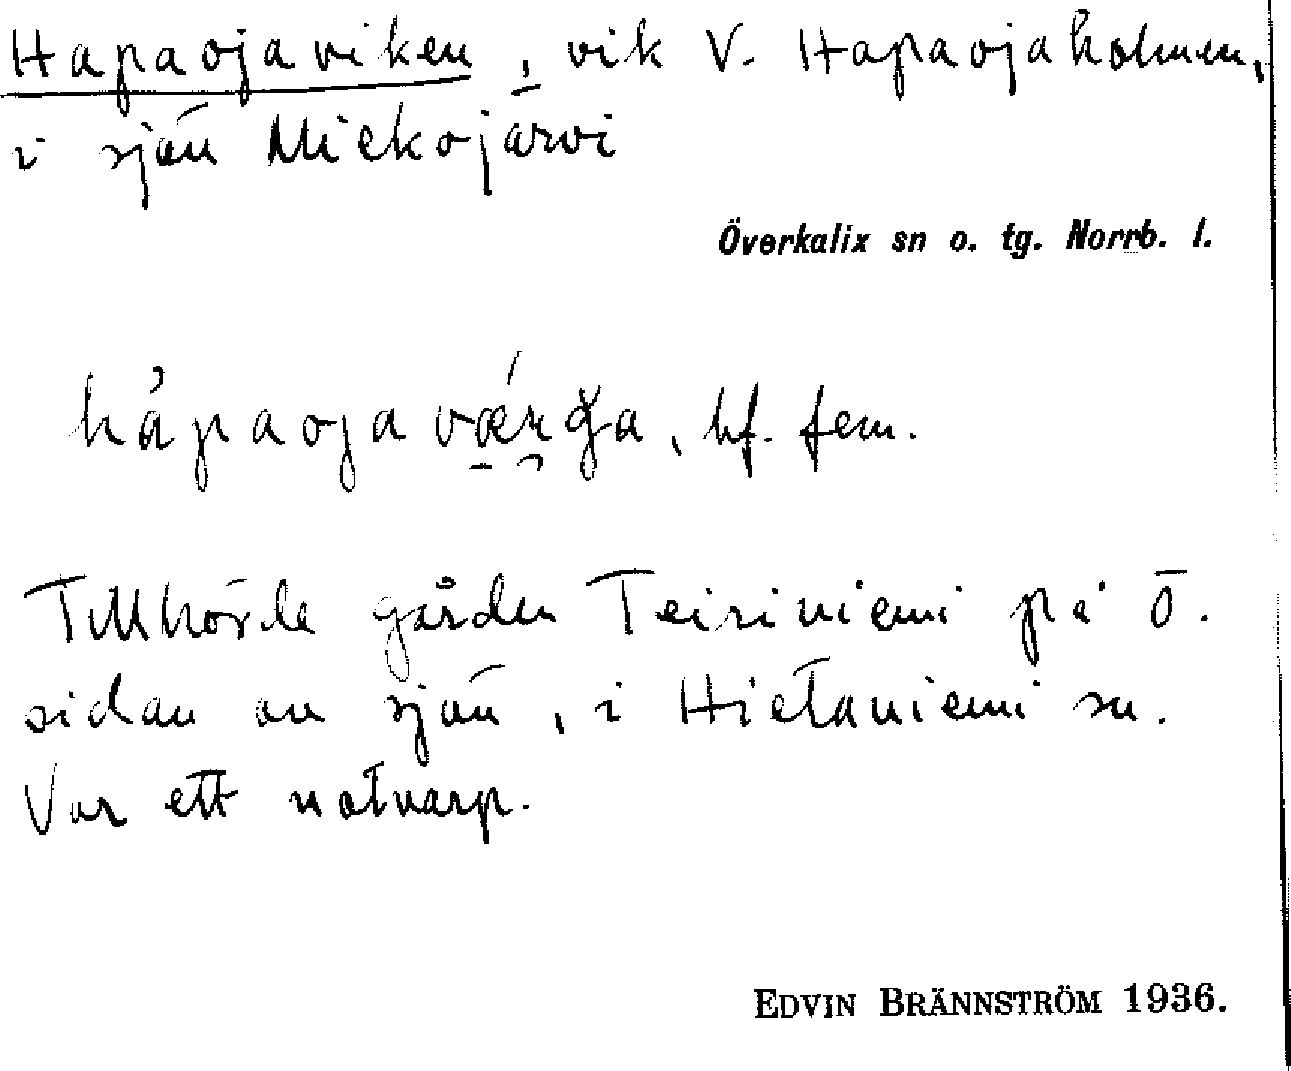 Hapaojaviken, vik V. Hapaojaholmen,
i sjön Miekojärvi
Överkalix sn o. tg. Norrb. l.
hápaojavǽrga, bf. fem.
Tillhörde gården Teiriniemi på Ö.
sidan av sjön, i Hietaniemi sn.
Var ett notvarp.
EDVIN BRÄNNSTRÖM 1936.